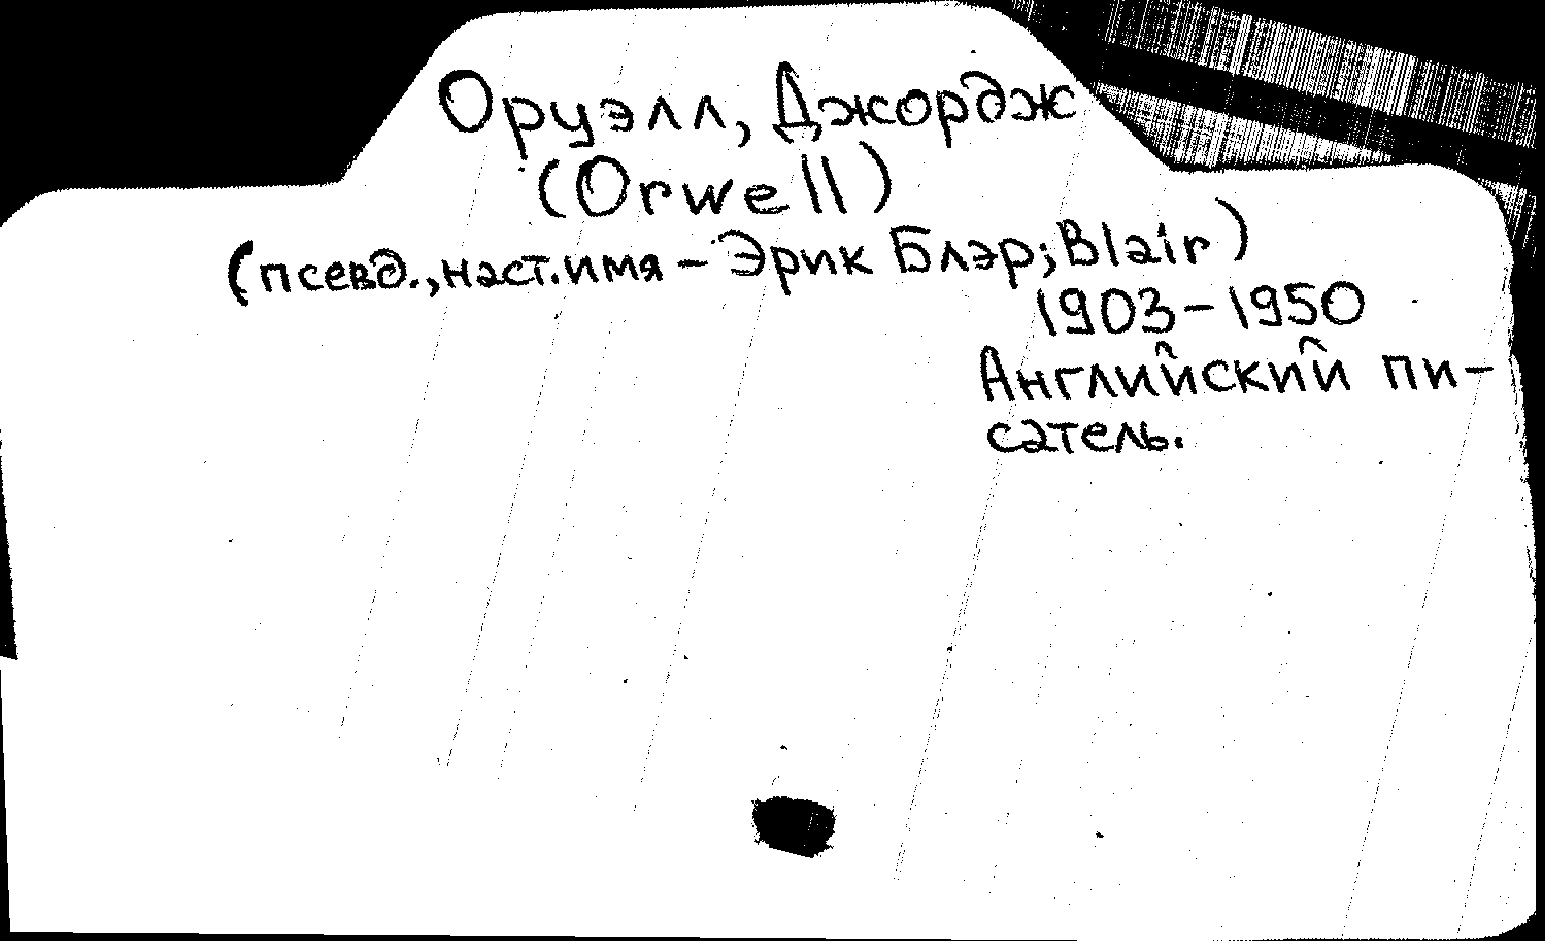 Оруэлл, Джордж
(Orwell)
(псевд., наст. имя – Эрик Блэр; Blair)
1903–1950
Английский пи-
сатель.